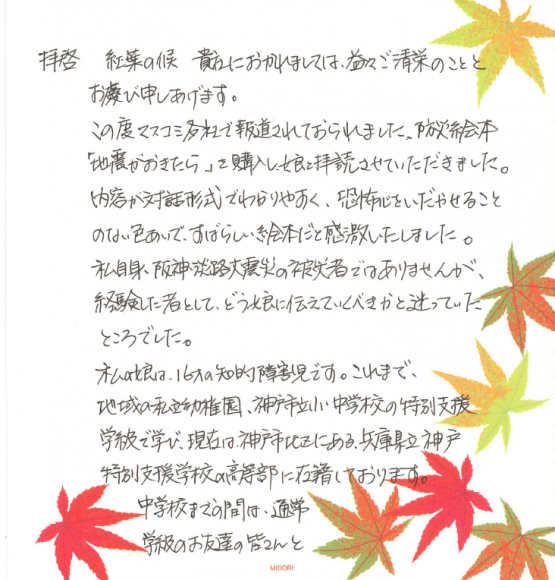 拝啓　紅葉の候　貴社におかれましては、益々ご清栄のことと
お慶び申しあげます。
この度マスコミ各社で報道されておられました、防災絵本
「地震がおきたら」を購入し、娘と拝読させていただきました。
内容が対話形式でわかりやすく、恐怖心をいだかせること
のない色あいで、すばらしい絵本だと感激いたしました。
私自身、阪神・淡路大震災の被災者ではありませんが、
経験した者として、どう娘に伝えていくべきかと迷っていた
ところでした。
私の娘は、16才の知的障害児です。これまで、
地域の私立幼稚園、神戸市立小中学校の特別支援
学級で学び、現在は、神戸市北区にある、兵庫県立神戸
特別支援学校の高等部に在籍しております。
中学校までの間は、通常
学級のお友達の皆さんと
MIDORI